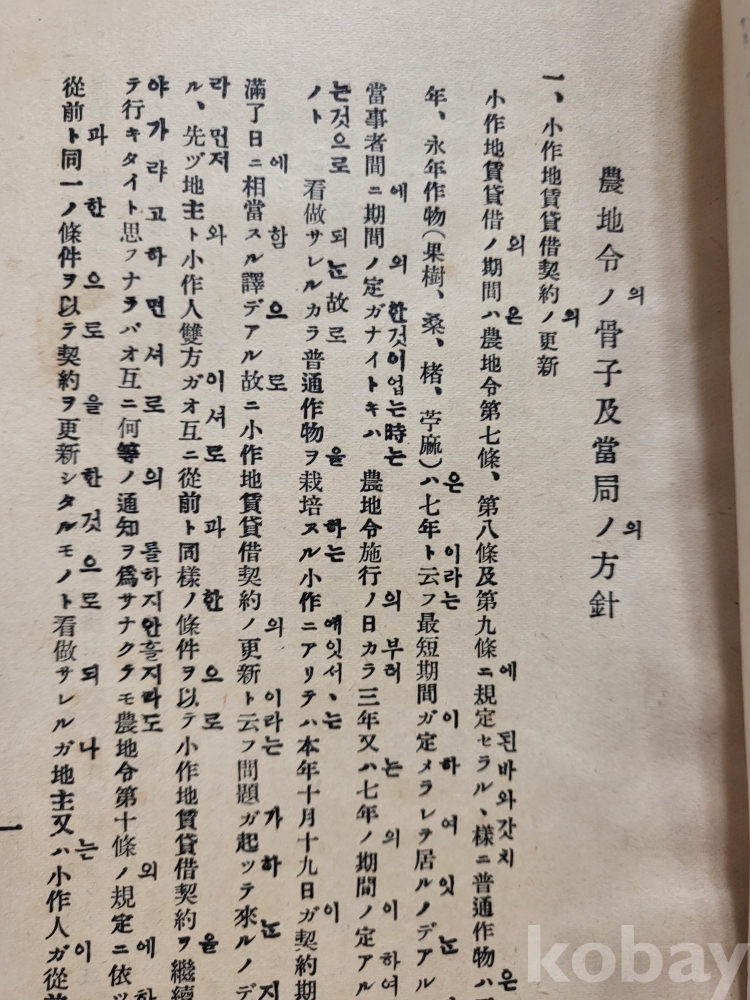 農地令ノ骨子及當局ノ方針
의 의
一、小作地賃貸借契約ノ更新
의
小作地賃貸借ノ期間ハ農地令第七條、第八條及第九條ニ規定セラルヽ樣ニ普通作物ハ
의 은 에 된바와갓치 은
年、永年作物(果樹、桑、楮、苧麻)ハ七年ト云フ最短期間ガ定メラレテ居ルノデアル
은 이라는 이 하여 잇 는
當事者間ニ期間ノ定ガナイトキハ 農地令施行ノ日カラ三年又ハ七年ノ期間ノ定アル
에 의 한것이업는時는 의 부허 는 의 이 하여
ノト 看做サレルカラ普通作物ヲ栽培スル小作ニアリテハ本年十月十九日ガ契約期
는것으로 되는故로 을 하는 에잇서、는 이
滿了日ニ相當スル譯デアル故ニ小作地賃貸借契約ノ更新ト云フ問題ガ起ツテ來ルノデ
에 함 으로 의 이라는 가 하 는 지
ル、先ヅ地主ト小作人雙方ガオ互ニ從前ト同樣ノ條件ヲ以テ小作地賃貸借契約ヲ繼續
라 먼저 와 이 셔로 과 한 으로 을
テ行キタイト思フナラバオ互ニ何等ノ通知ヲ爲サナクテモ農地令第十條ノ規定ニ依ツ
야가랴고하면셔로 의 를하지안흘지라도 의 에 하
從前ト同一ノ條件ヲ以テ契約ヲ更新シタルモノト看做サレルガ地主又ハ小作人ガ從前
과 한 으로 을 한것으로 되 나 는 이
一
kobay